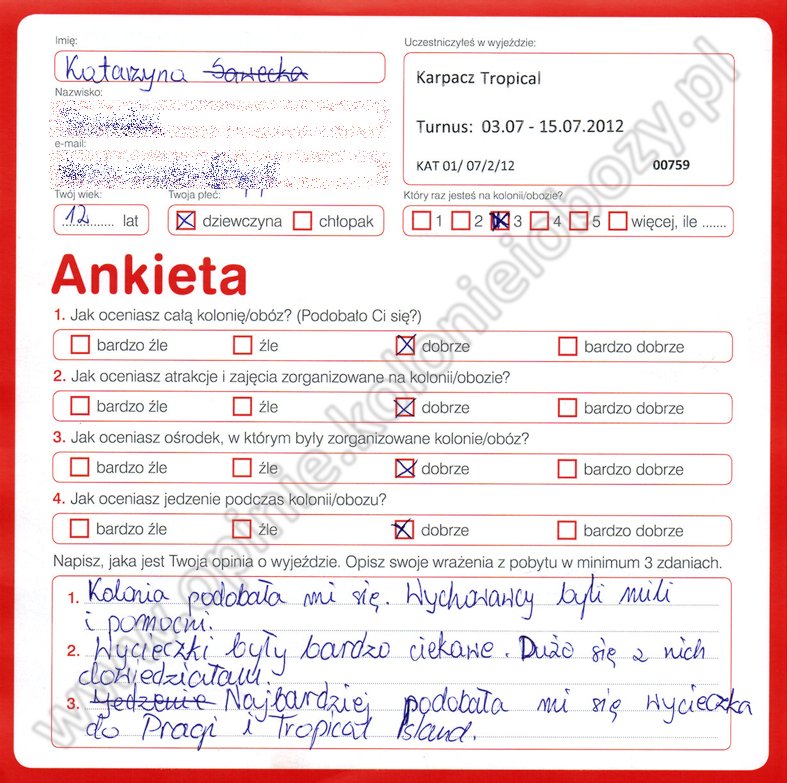 Imię:
Katarzyna
Nazwisko:
e-mail:
Twój wiek:
12 lat
Twoja płeć:
dziewczyna chłopak
Uczestniczyłeś w wyjeździe:
Karpacz Tropical
Turnus: 03.07 - 15.07.2012
KAT 01/ 07/2/12 00759
Który raz jesteś na kolonii/obozie?
1 2 3 4 5 więcej, ile .......
Ankieta
1. Jak oceniasz całą kolonię/obóz? (Podobało Ci się?)
bardzo źle źle dobrze bardzo dobrze
2. Jak oceniasz atrakcje i zajęcia zorganizowane na kolonii/obozie?
bardzo źle źle dobrze bardzo dobrze
3. Jak oceniasz ośrodek, w którym były zorganizowane kolonie/obóz?
bardzo źle źle dobrze bardzo dobrze
4. Jak oceniasz jedzenie podczas kolonii/obozu?
bardzo źle źle dobrze bardzo dobrze
Napisz, jaka jest Twoja opinia o wyjeździe. Opisz swoje wrażenia z pobytu w minimum 3 zdaniach.
1. Kolonia podobała mi się. Wychowawcy byli mili
i pomocni.
2. Wycieczki były bardzo ciekawe. Dużo się z nich
dowiedziałam.
3. Jedzenie Najbardziej podobała mi się wycieczka
do Pragi i Tropical Island.
www.opinie.kolonieiobozy.pl